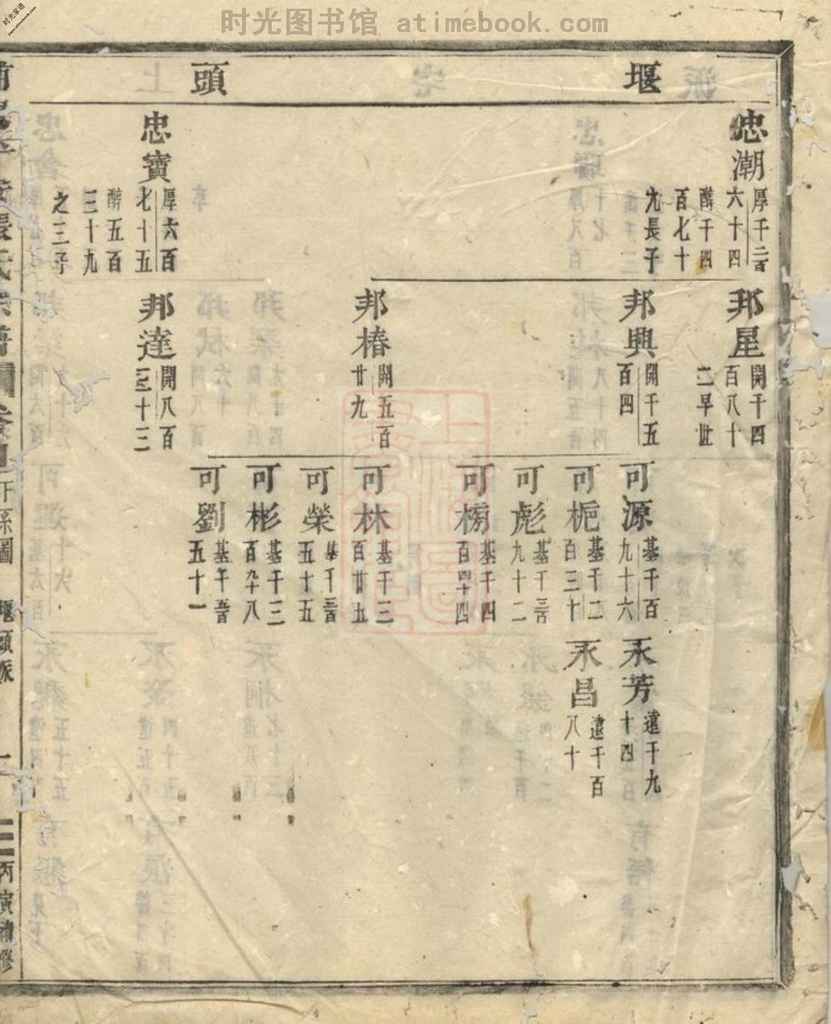 时光图书馆 / atimebook.com
堰頭
忠潮
厚千二百
六十四
酧千四
百七十
九長子
忠寶
厚六百
七十五
酧五百
三十九
之三子
邦星
開千四
百八十
二早世
邦興
開千五
百四
邦椿
開五百
廿九
邦達
開八百
三十三
可源
基千百
九十六
可梔
基千二
百三十
可彪
基千三百
九十二
可榜
基千四
百四十四
可林
基千三
百廿五
可榮
基千三百
五十五
可彬
基千三
百九十八
可劉
五十一
永芳
遠千九
十四
永昌
遠千百
八十
張氏宗譜
圖
堰頭派
丙寅補修